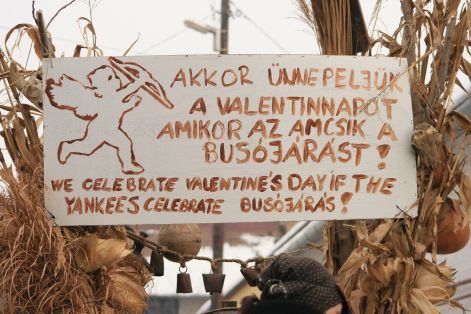 AKKOR ÜNNEPELJÜK
A VALENTINNAPOT
AMIKOR AZ AMCSIK A
BUSÓJÁRÁST!
WE CELEBRATE VALENTINE'S DAY IF THE
YANKEES CELEBRATE BUSÓJÁRÁS!